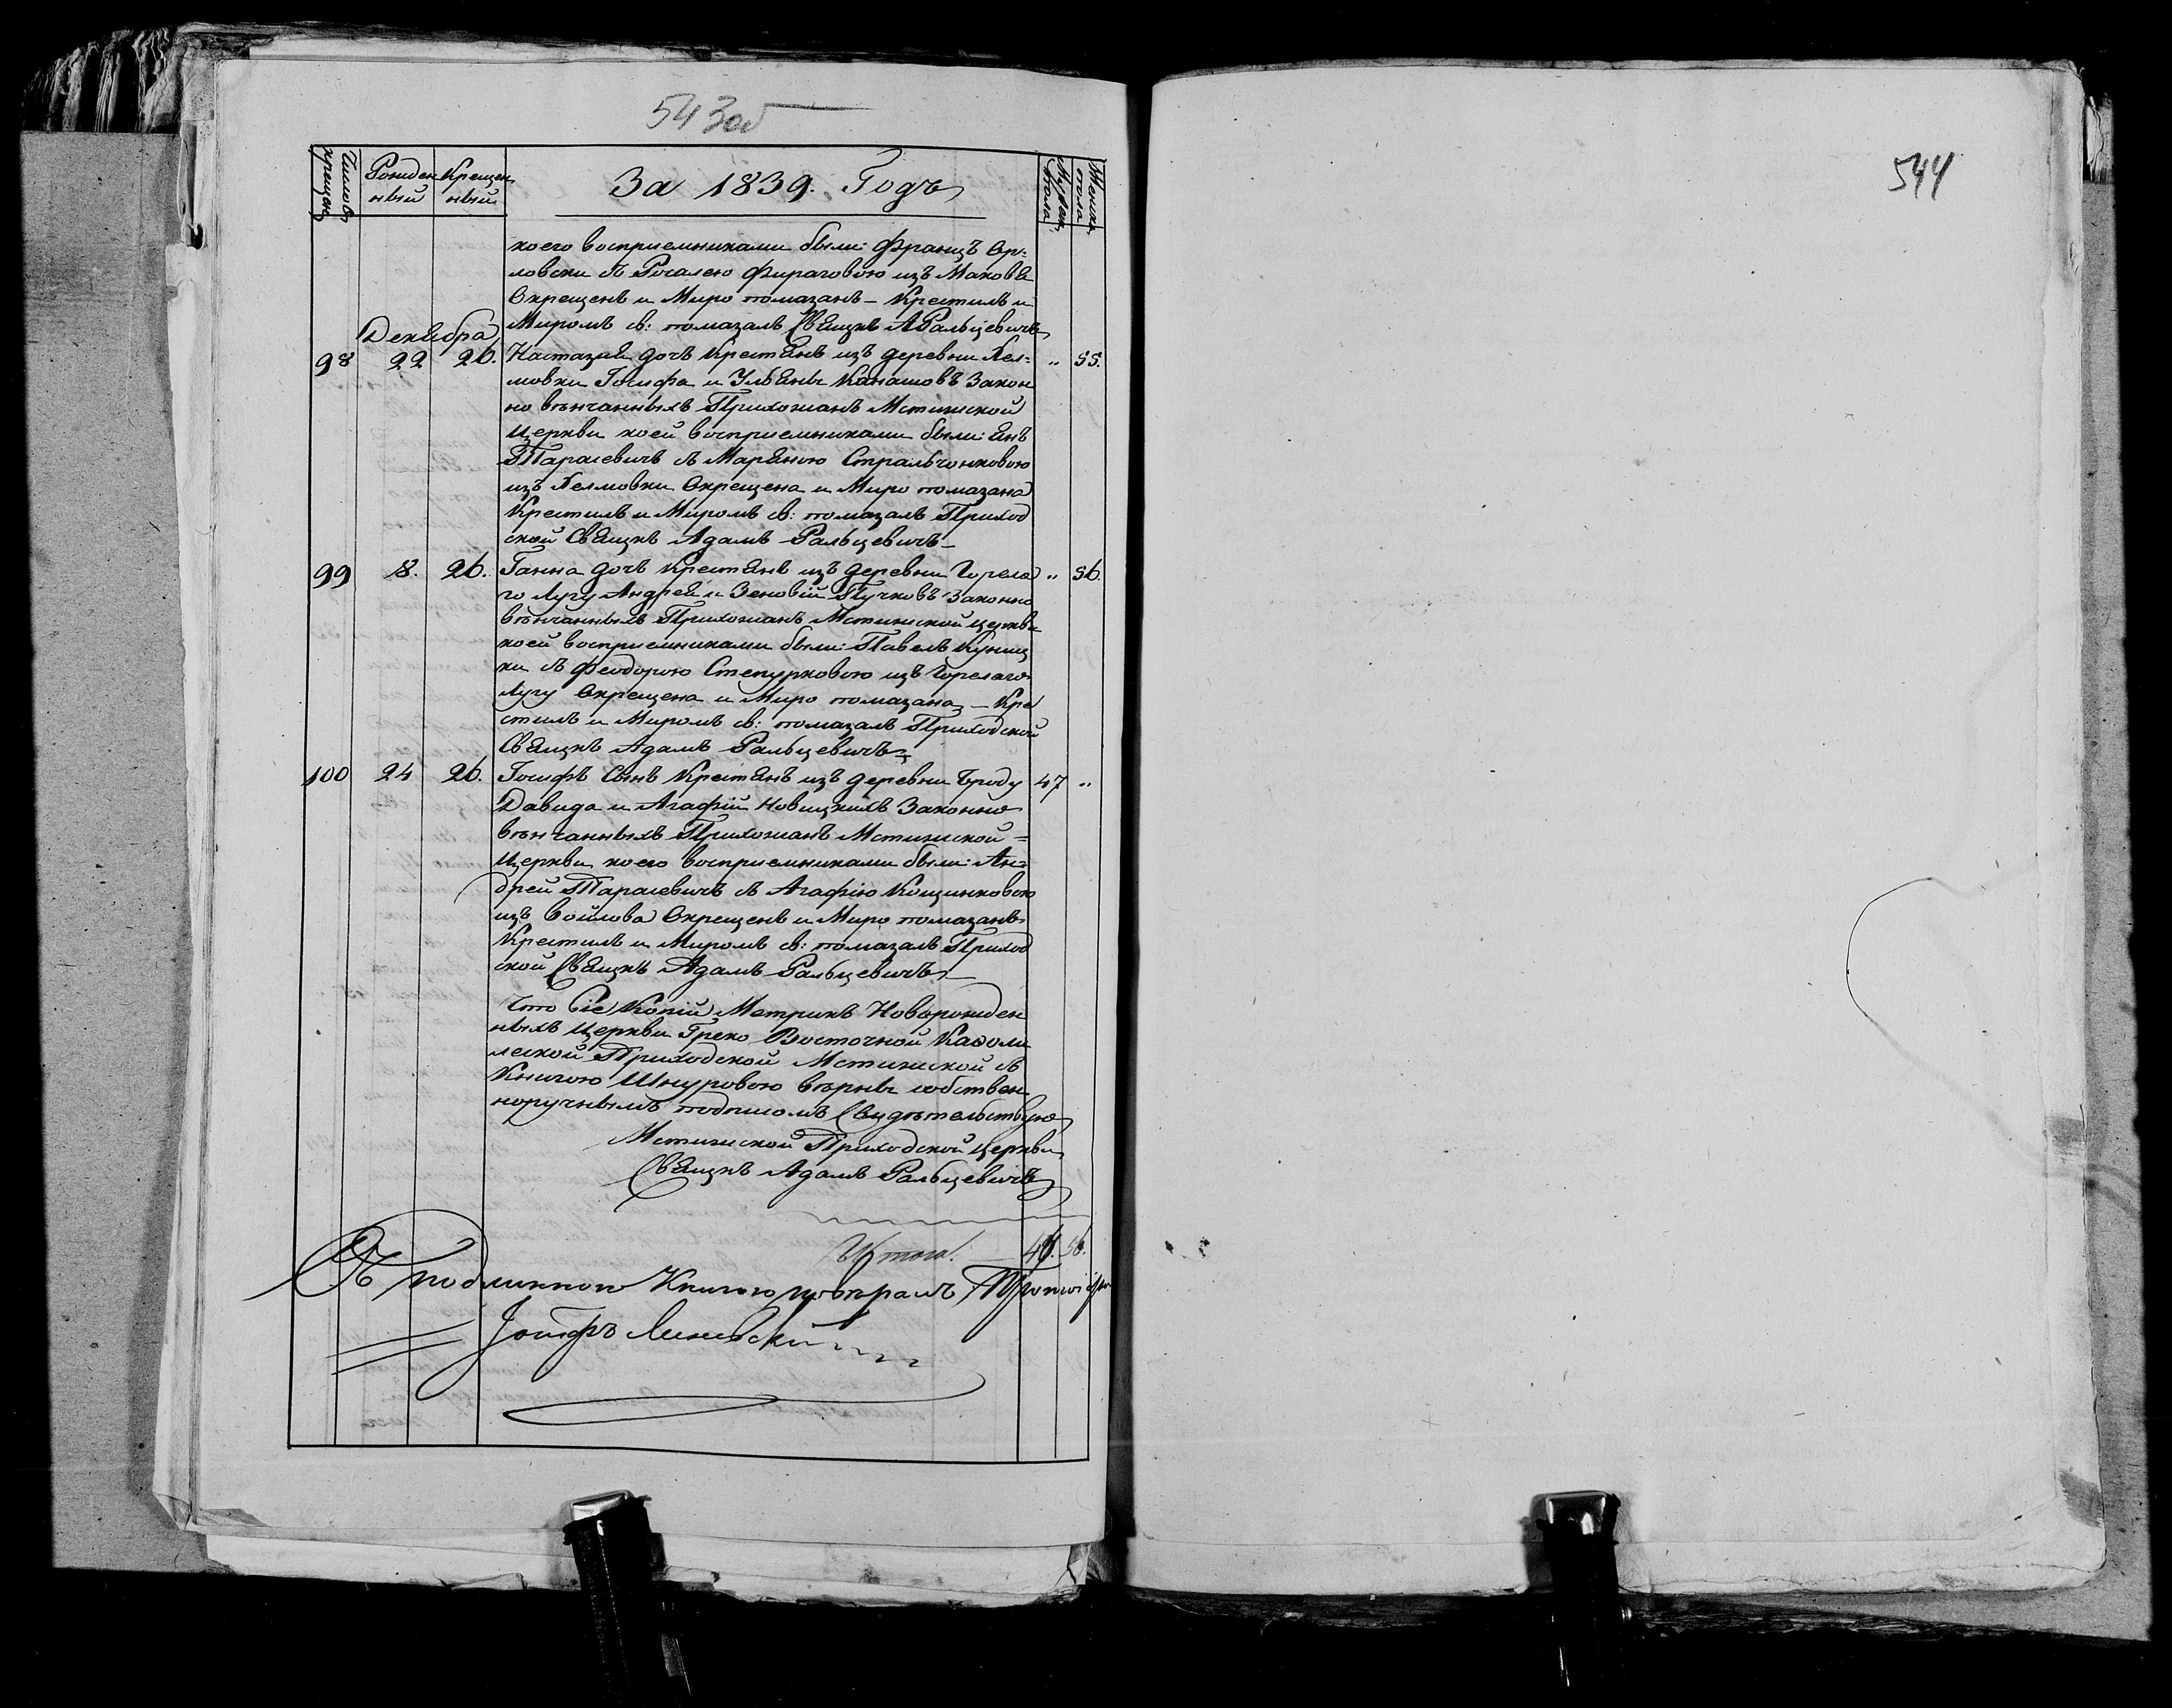 543об
Число крещен.
Рожден
ный
Крещен
ный
За 1839. Годъ
Мужеск.
пола
Женска
пола
коего восприемниками были: Францъ Ор=
ловски съ Рогалею Фираговою изъ
Окрещенъ и Миро помазанъ – Крестилъ и
Миромъ св: помазалъ Свящнъ А Ральцевичъ
Декабра
98 22 26. Настазия дочъ Крестянъ изъ деревни Хел= " 55.
мовки Іосифа и Ульяны Канашовъ Закон
но венчанныхъ Прихожанъ Мстижской
Церкви коей восприемниками были: Янъ
Тарасевичъ съ Маряною Стральчонковою
изъ Хелмовки Окрещена и Миро помазана
Крестилъ и Миромъ св: помазалъ Приход
ской Свящнъ Адамъ Ральцевичъ –
99 8. 26. Ганна дочъ Крестянъ изъ деревни Горела " 56.
го Лугу Андрея и Зеновій Пучковъ Законно
вѣнчанныхъ Прихожанъ Мстижской церкви
коей восприемниками были: Павелъ Куниц
ки съ Феодорою Степурковою изъ Горелаго
Лугу Окрещена и Миро помазана – Кре
стилъ и Миромъ св: помазалъ Приходской
Свящнъ Адамъ Ральцевичъ
100 24 26. Іосифъ Сынъ Крестянъ изъ деревни Броду 47 "
Давида и Агафій Новицкихъ Законно
вѣнчанныхъ Прихожанъ Мстижской =
Церкви коего восприемниками были: Ан=
дрей Тарасевичъ съ Агафію Кощинковою
изъ Войлова Окрещенъ и Миро помазанъ
Крестилъ и Миромъ св: помазалъ Приход
ской Свящнъ Адамъ Ральцевичъ –
Что Сіе Копій Метрикъ Новорожден
ныхъ Церкви Греко Восточной Каѳоли
леской Приходской Мстижской съ
Книгою Шнуровою вѣрны собствен
норучнымъ подписомъ Свидѣтельствую
Мстижской Приходской Церкви
Свящнъ Адамъ Ральцевичъ
Итого. 56.
Съ подлинною Книгою повѣралъ
Іосифъ
544